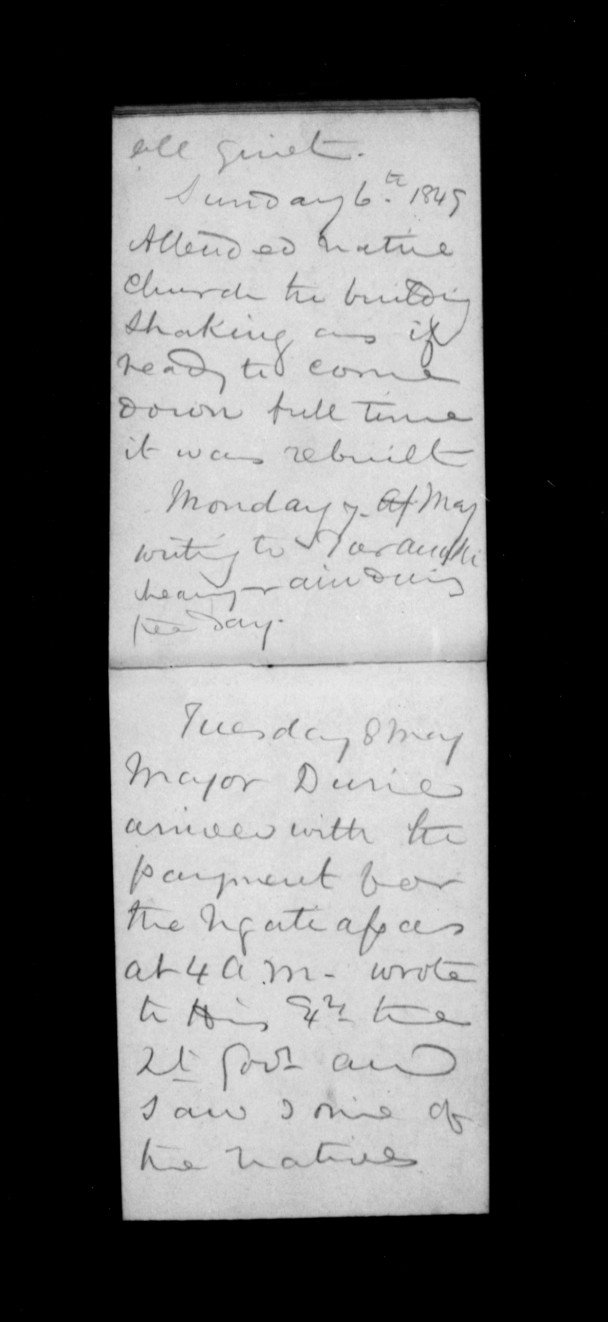 all quiet.
Sunday 6th 1849
Attended native
church the building
shaking as if
ready to come
down full time
it was rebuilt
Monday 7 May
writing to Taranaki
heavy rain during
the day.
Tuesday 8 May
Major Durie
arrived with the
payment for
the Ngatiapas
at 4 A.M. wrote
to His the
Lt Govr and
saw some of
the natives